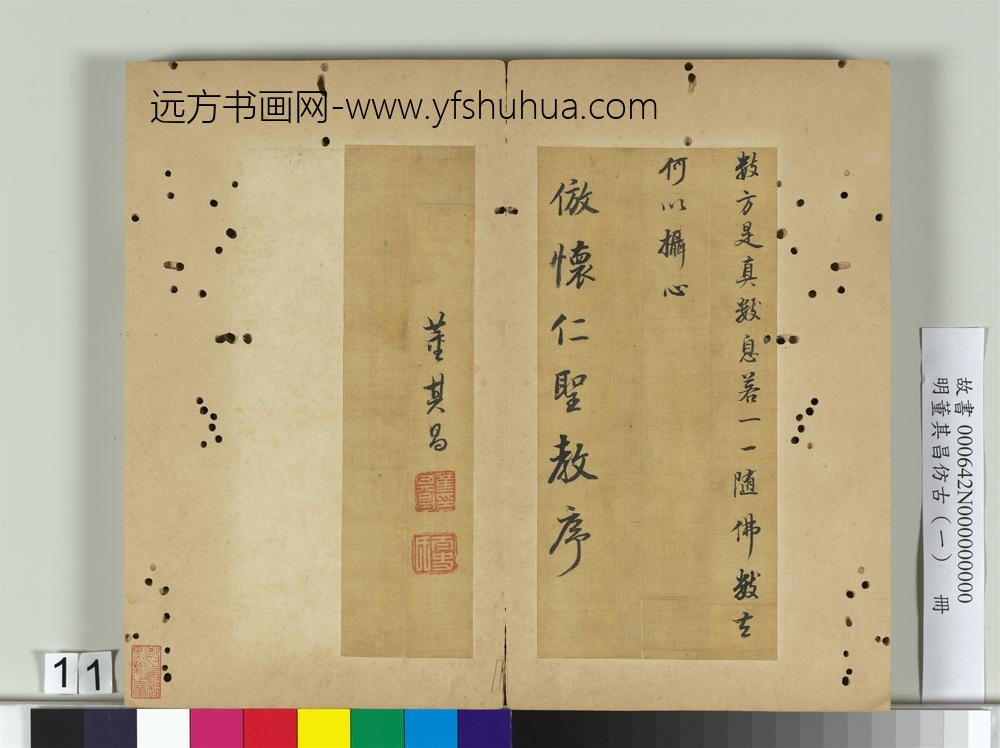 远方书画网-www.yfshuhua.com
數方是真數息若一一随佛數去
何以攝心
倣懷仁聖教序
董其昌
故書 000642N000000000
明董其昌仿古（一） 冊
11